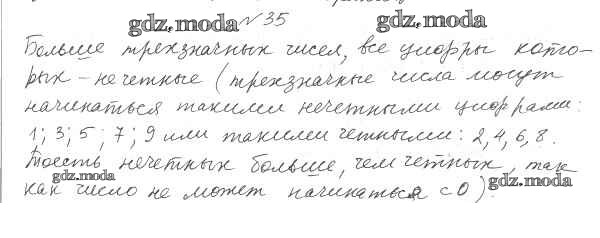 gdz.moda №35 gdz.moda
Больше трехзначных чисел, все цифры кото-
рых - нечетные (трехзначные числа могут
начинаться такими нечетными цифрами:
1; 3; 5; 7; 9 или такими четными: 2, 4, 6, 8.
Тоесть нечетных больше, чем четных, так
gdz.moda
как число не может начинаться с 0).
gdz.moda